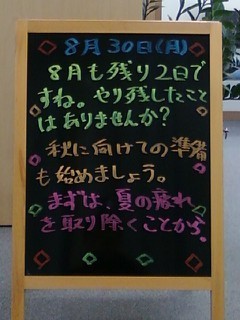 8月30日(月)
8月も残り2日で
すね。やり残したこと
はありませんか？
秋に向けての準備
も始めましょう。
まずは、夏の疲れ
を取り除くことから。